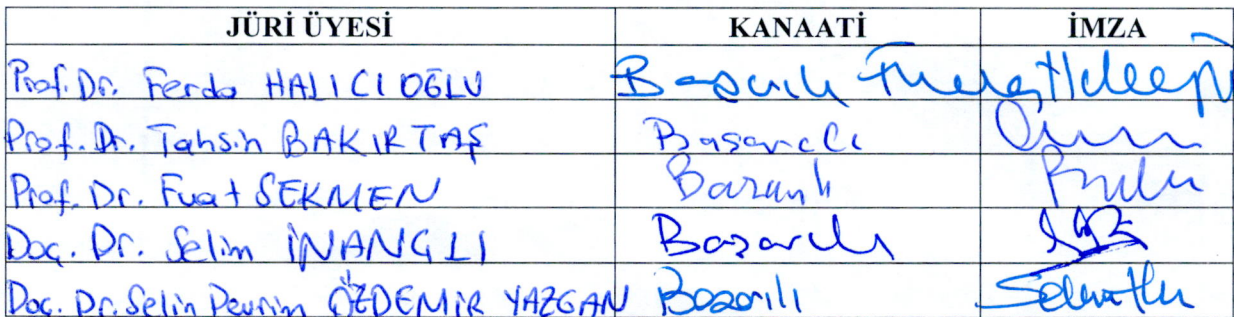 JÜRİ ÜYESİ KANAATİ İMZA
Prof. Dr. Ferda HALICIOĞLU Başarılı
Prof. Dr. Tahsin BAKIRTAŞ Başarılı
Prof. Dr. Fuat SEKMEN Başarılı
Doç. Dr. Selim İNANÇLI Başarılı
Doç. Dr. Selin Devrim ÖZDEMİR YAZGAN Başarılı